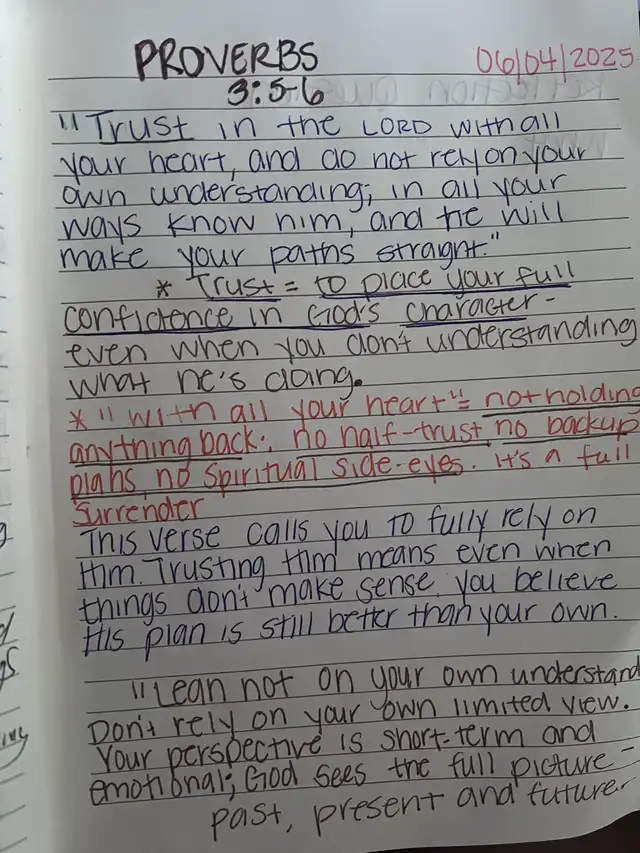 PROVERBS 06/04/2025
3:5-6
"Trust in the LORD with all
your heart, and do not rely on your
own understanding; in all your
ways know him, and he will
make your paths straight."
* Trust = to place your full
confidence in God's character -
even when you don't understanding
what he's doing.
* "with all your heart" = not holding
anything back; no half-trust, no backup
plans, no spiritual side-eyes. It's a full
surrender
This verse calls you to fully rely on
Him. Trusting Him means even when
things don't make sense, you believe
His plan is still better than your own.
"Lean not on your own understand
Don't rely on your own limited view.
Your perspective is short-term and
emotional; God sees the full picture -
past, present and future.